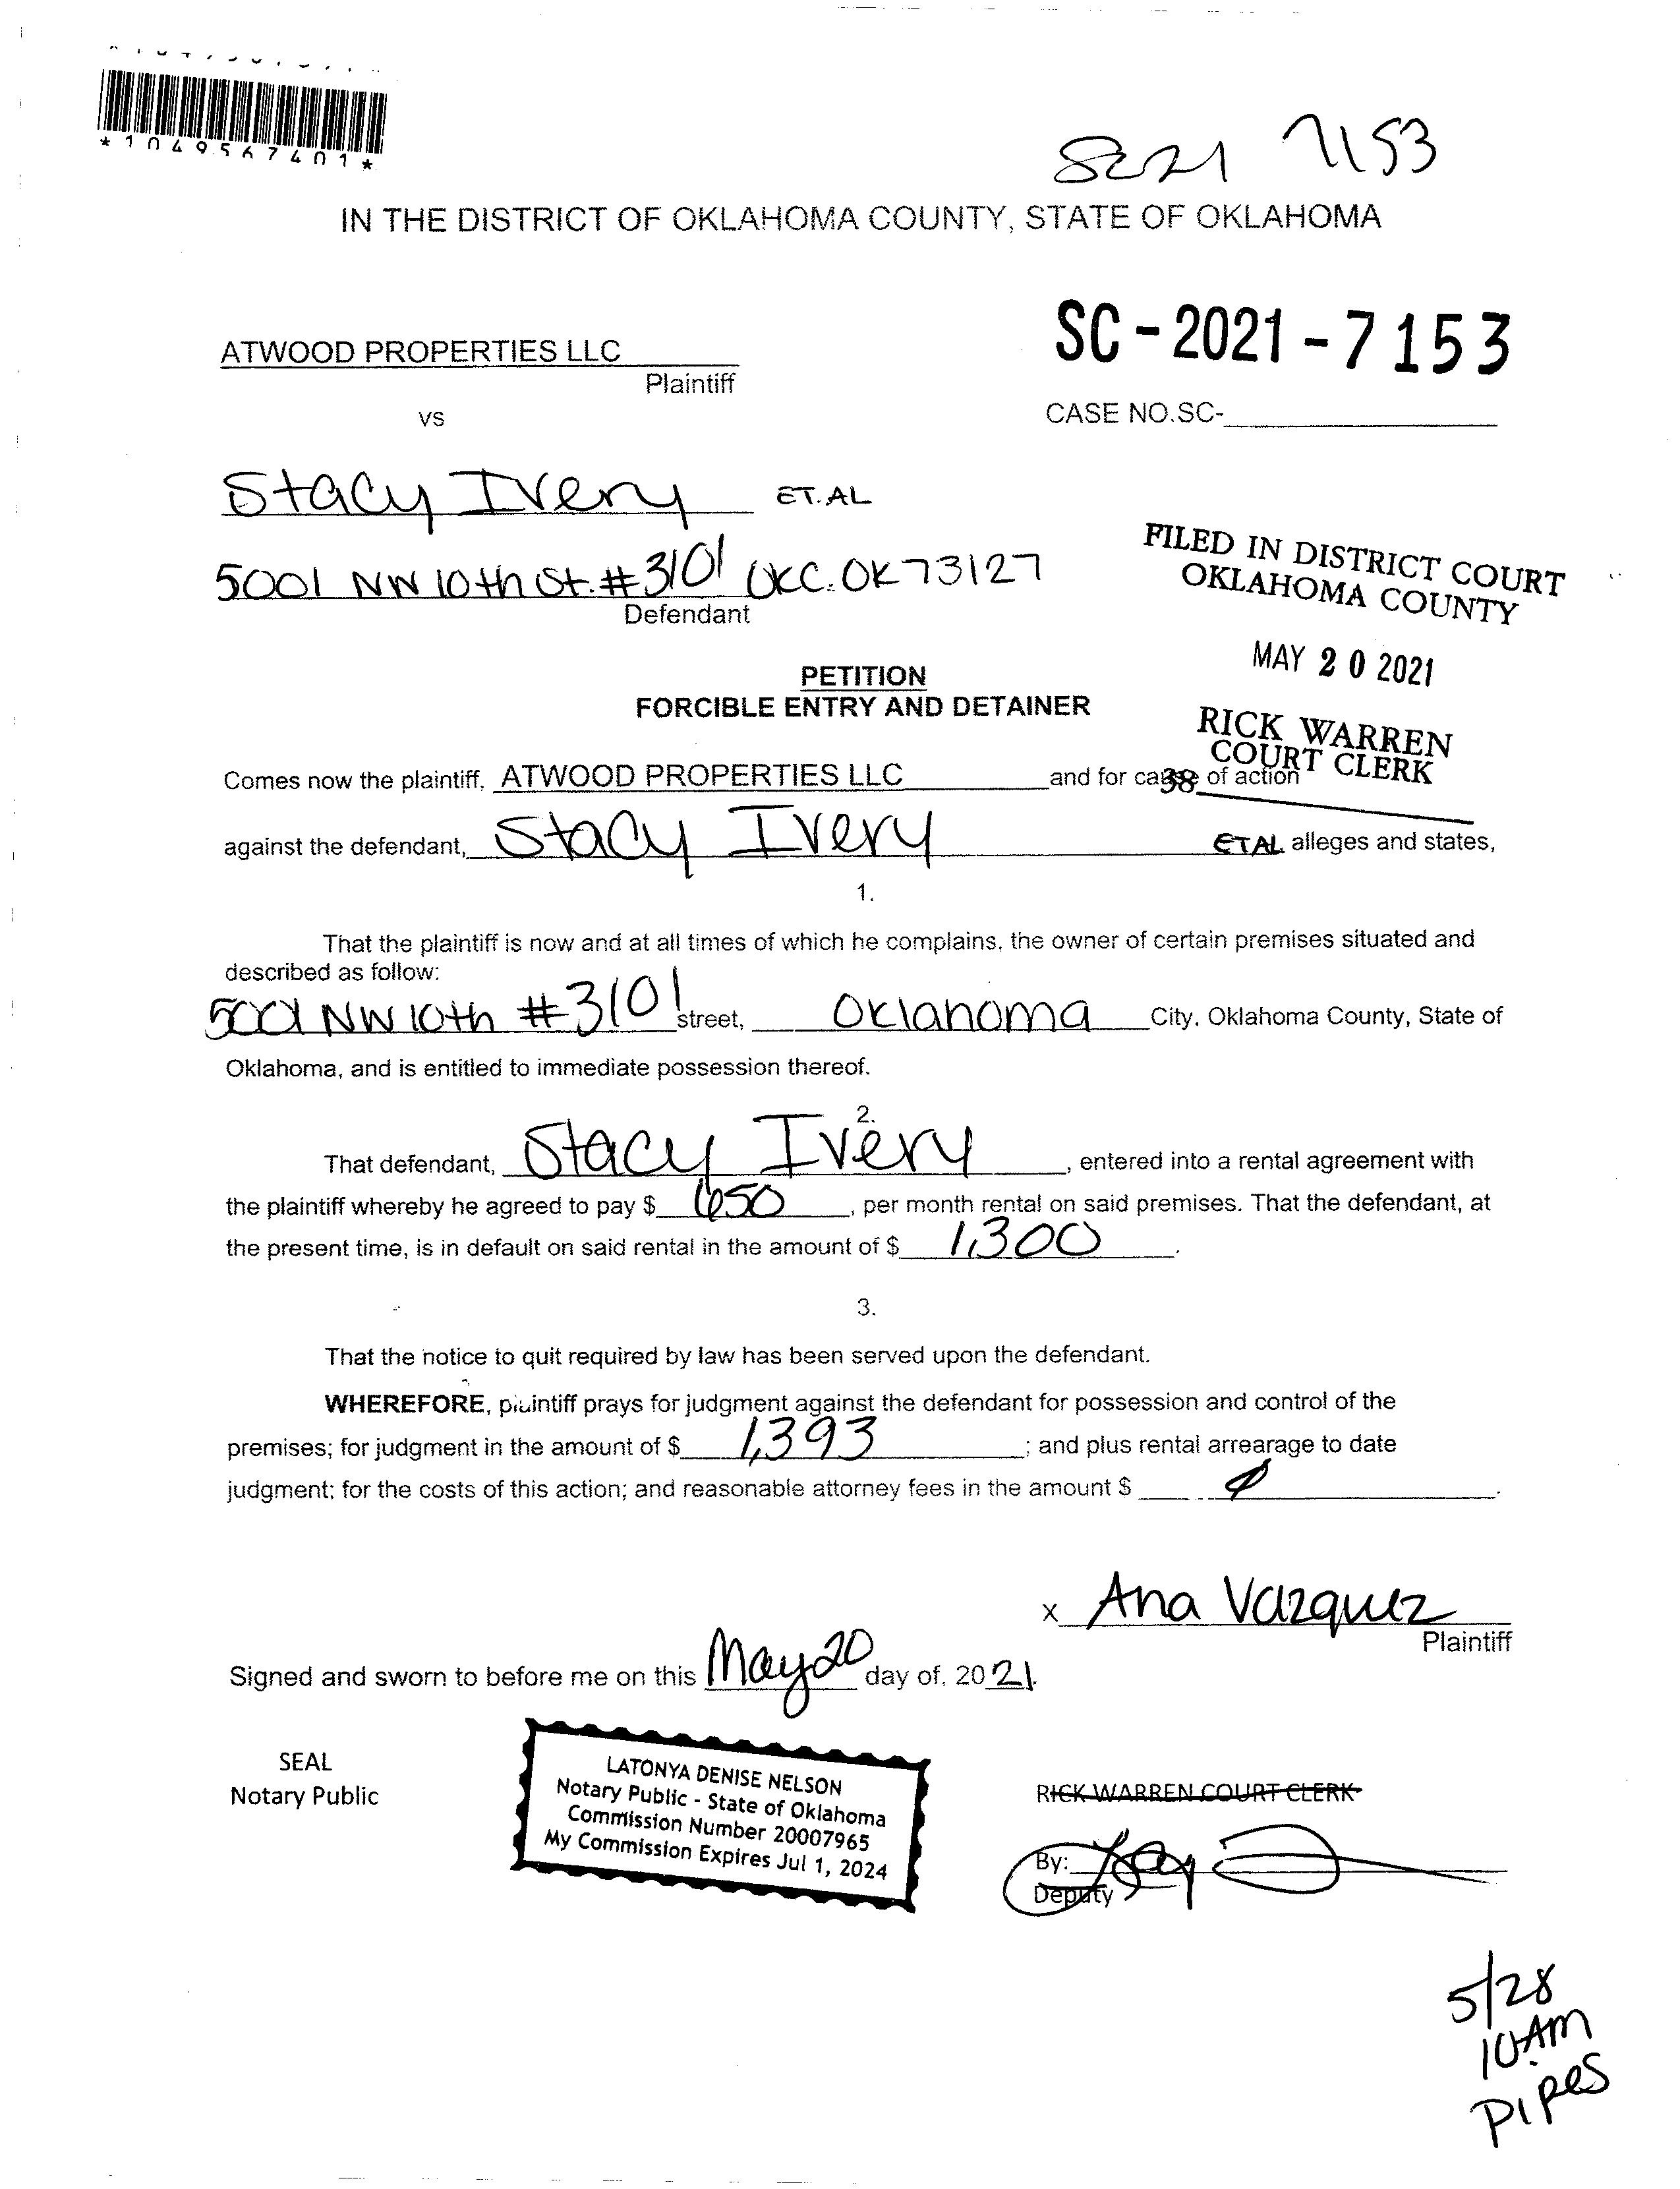 *1049567401*
SC21 7153
IN THE DISTRICT OF OKLAHOMA COUNTY, STATE OF OKLAHOMA
ATWOOD PROPERTIES LLC
Plaintiff
SC-2021-7153
vs
CASE NO.SC-
Stacy Ivery ET.AL
5001 NW 10th St. #3101 OKC. OK 73127
Defendant
FILED IN DISTRICT COURT
OKLAHOMA COUNTY
MAY 20 2021
RICK WARREN
COURT CLERK
38
PETITION
FORCIBLE ENTRY AND DETAINER
Comes now the plaintiff, ATWOOD PROPERTIES LLC and for cause of action
against the defendant, Stacy Ivery ETAL alleges and states,
1.
That the plaintiff is now and at all times of which he complains, the owner of certain premises situated and
described as follow:
5001 NW 10th #3101 street, Oklahoma City, Oklahoma County, State of
Oklahoma, and is entitled to immediate possession thereof.
2.
That defendant, Stacy Ivery, entered into a rental agreement with
the plaintiff whereby he agreed to pay $ 650, per month rental on said premises. That the defendant, at
the present time, is in default on said rental in the amount of $ 1,300.
3.
That the notice to quit required by law has been served upon the defendant.
WHEREFORE, plaintiff prays for judgment against the defendant for possession and control of the
premises; for judgment in the amount of $ 1,393; and plus rental arrearage to date
judgment; for the costs of this action; and reasonable attorney fees in the amount $ 0.
x Ana Vazquez
Plaintiff
Signed and sworn to before me on this May 20 day of, 2021.
SEAL
Notary Public
LATONYA DENISE NELSON
Notary Public - State of Oklahoma
Commission Number 20007965
My Commission Expires Jul 1, 2024
RICK WARREN COURT CLERK
By:
Deputy
5/28
10 AM
Pipes